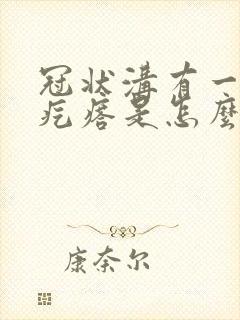 冠状溝有一
疙瘩是怎麼
康奈尔